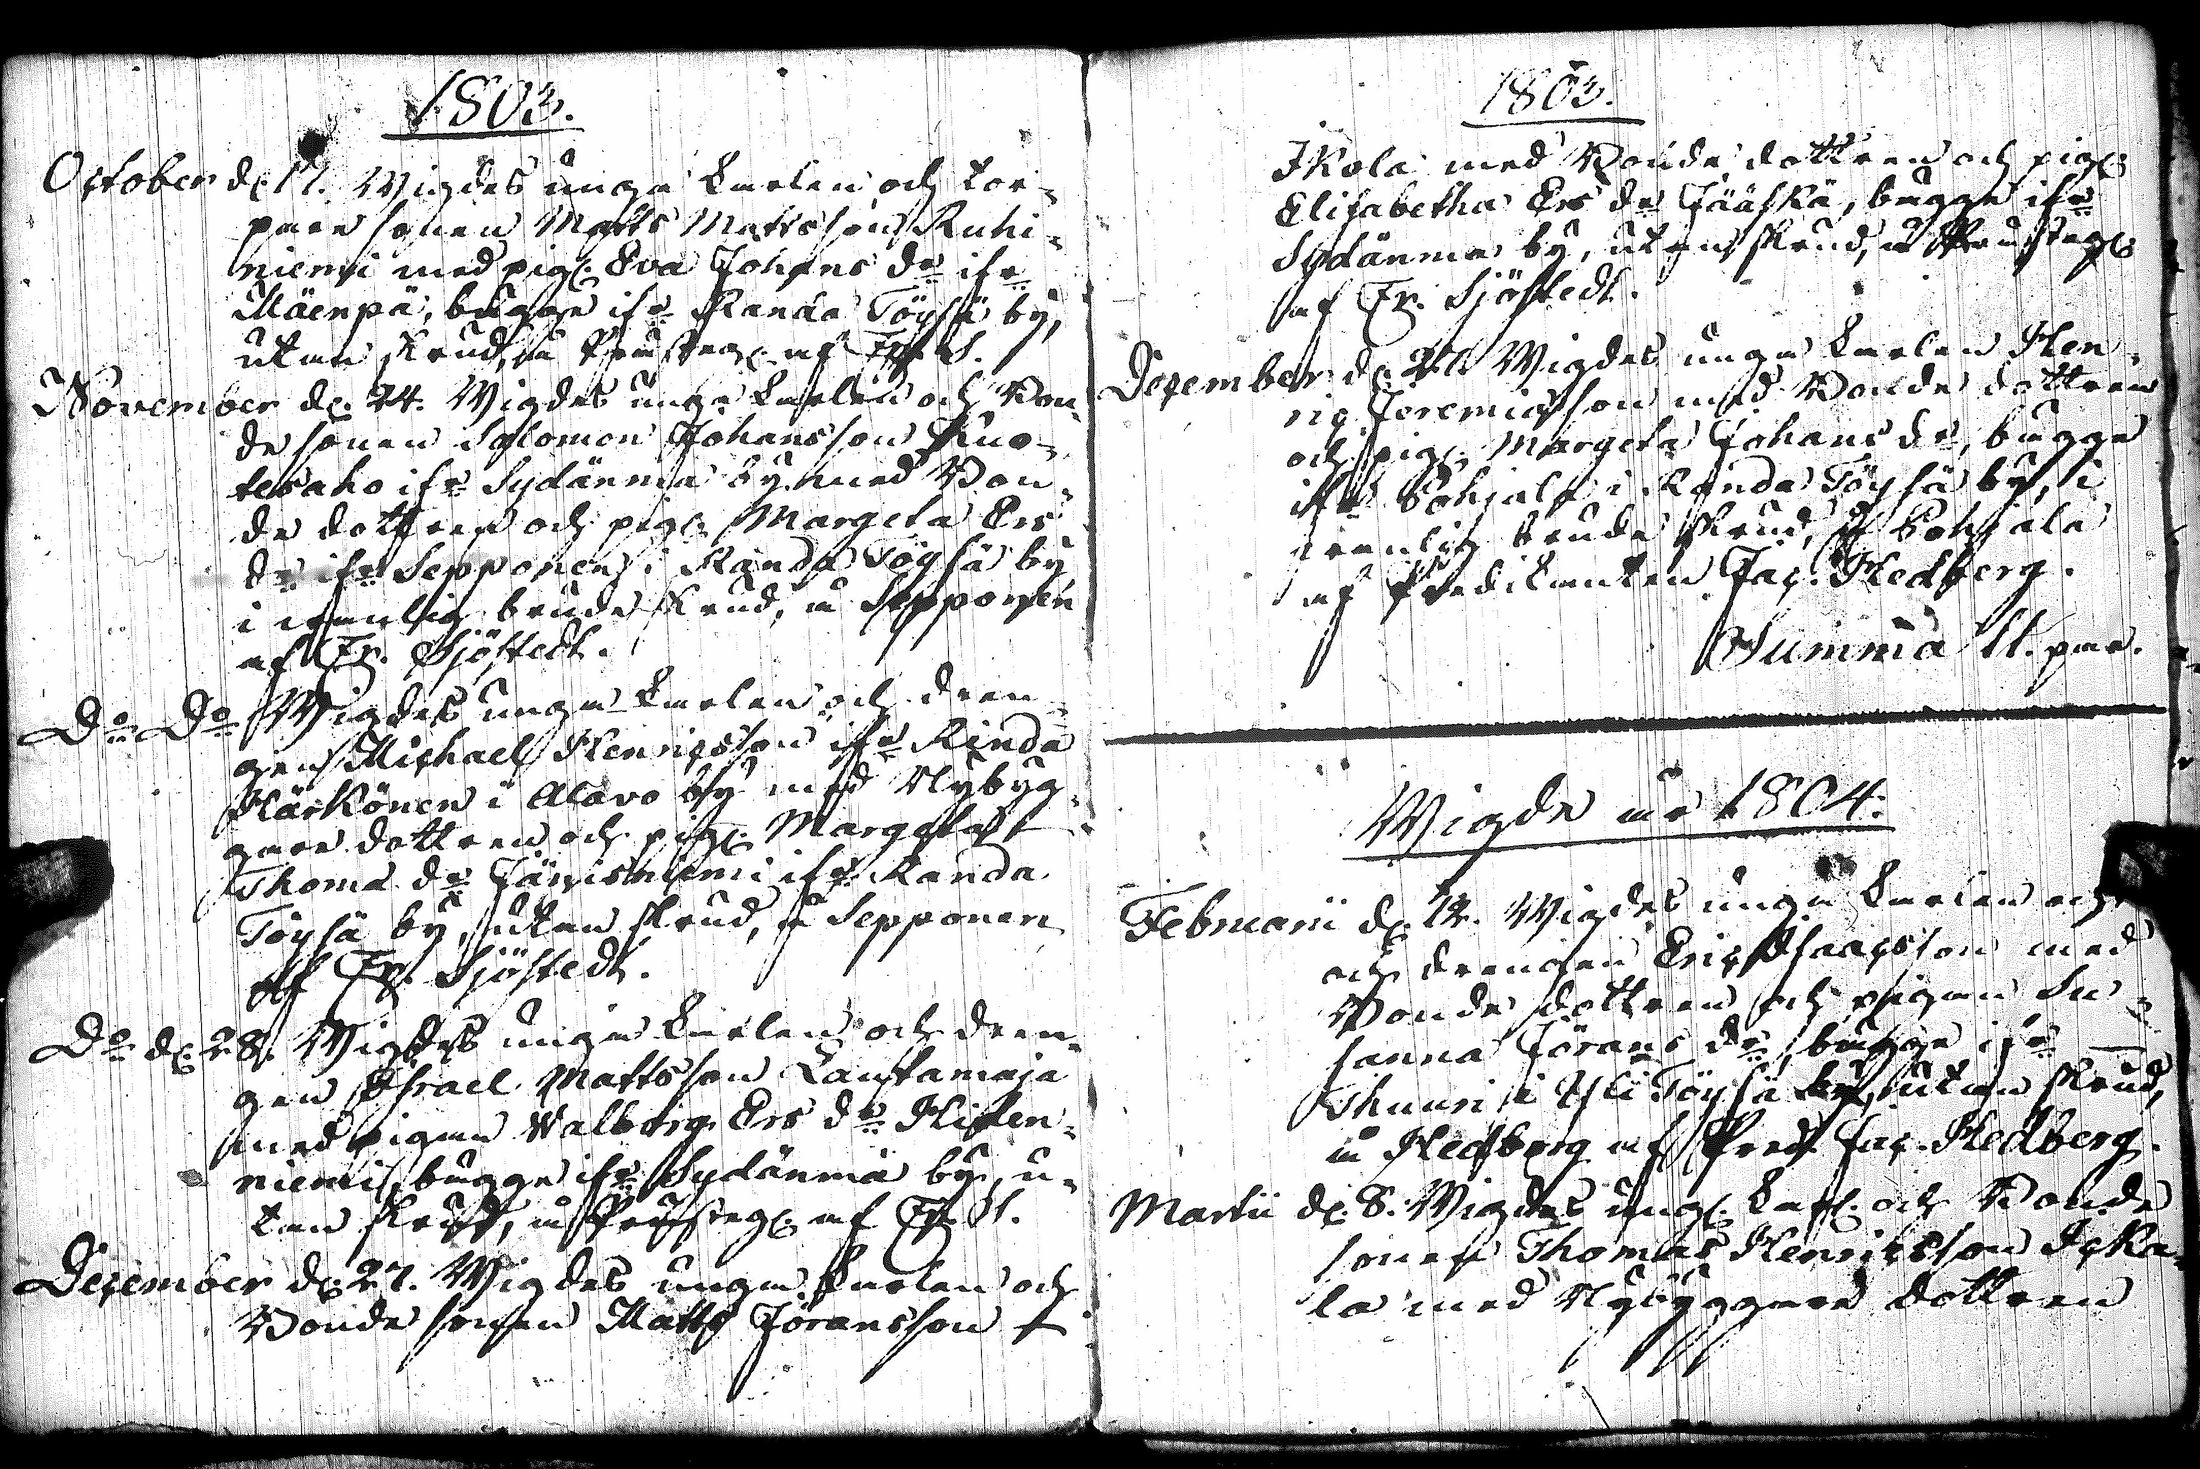 1803.
October d. 17. Wigdes unga karlen och tor-
pare sonen Matts Mattsson Ruhi-
niemi med pig. Eva Johans dr ifr
Mäenpä, bägge ifr Randa Töysä by,
utan skrud, å Prusteg. af Fr. S.
November d. 24. Wigdes unga karlen och Bon-
de sonen Salomon Johansson Kuo-
tesaho ifr Sydänma by med Bon-
de dottren och pig. Margeta Ers
dr ifr Sepponen i Randa Töysä by
i wanlig brude skrud, å Sepponen
af Fr. Sjöstedt.
Do Do Wigdes unga karlen och dren-
gen Michael Henricsson ifr Rinda
Härkönen i Alavo by med Nybyg-
gare dottren och pig. Margeta
Thoma dr Jänisniemi ifr Randa
Töysä by, utan skrud, å Sepponen
af Fr. Sjöstedt.
Do d. 28. Wigdes unga karlen och dren-
gen Israel Mattsson Lautamaja
med pigan Walborg Ers dr Hiden-
niemi, bägge ifr Sydänmä by, u-
tan skrud, å Prusteg. af Fr. S.
Dezember d. 27. Wigdes unga karlen och
Bonde sonen Matts Jöransson
1803.
Ikola med Bonde dottren och pig.
Elisabetha Ers dr Jääskä, bägge ifr
Sydänma by, utan skrud, å Prusteg.
af Fr. Sjöstedt.
Dezember d. 27. Wigdes unga karlen Hen-
ric Jeremiasson med Bonde dottren
och pig. Margeta Johans dr, bägge
ifr Pohjala i Randa Töysä by, i
wanlig brude skrud, å Pohjala
af Predikanten Jac. Hedberg.
Summa 11. par.
Wigde år 1804:
Februarii d. 12. Wigdes unga karlen och
och drengen Eric Isaacsson med
Bonde dottren och pigan Su-
sanna Jörans dr, bägge ifr
Thuuri i Yli Töysä by, utan skrud,
å Hedberg af Pred. Jac. Hedberg.
Martii d. 8. Wigdes ung. karl. och Bonde
sonen Thomas Henricsson Icka-
la med Nybyggare dottren